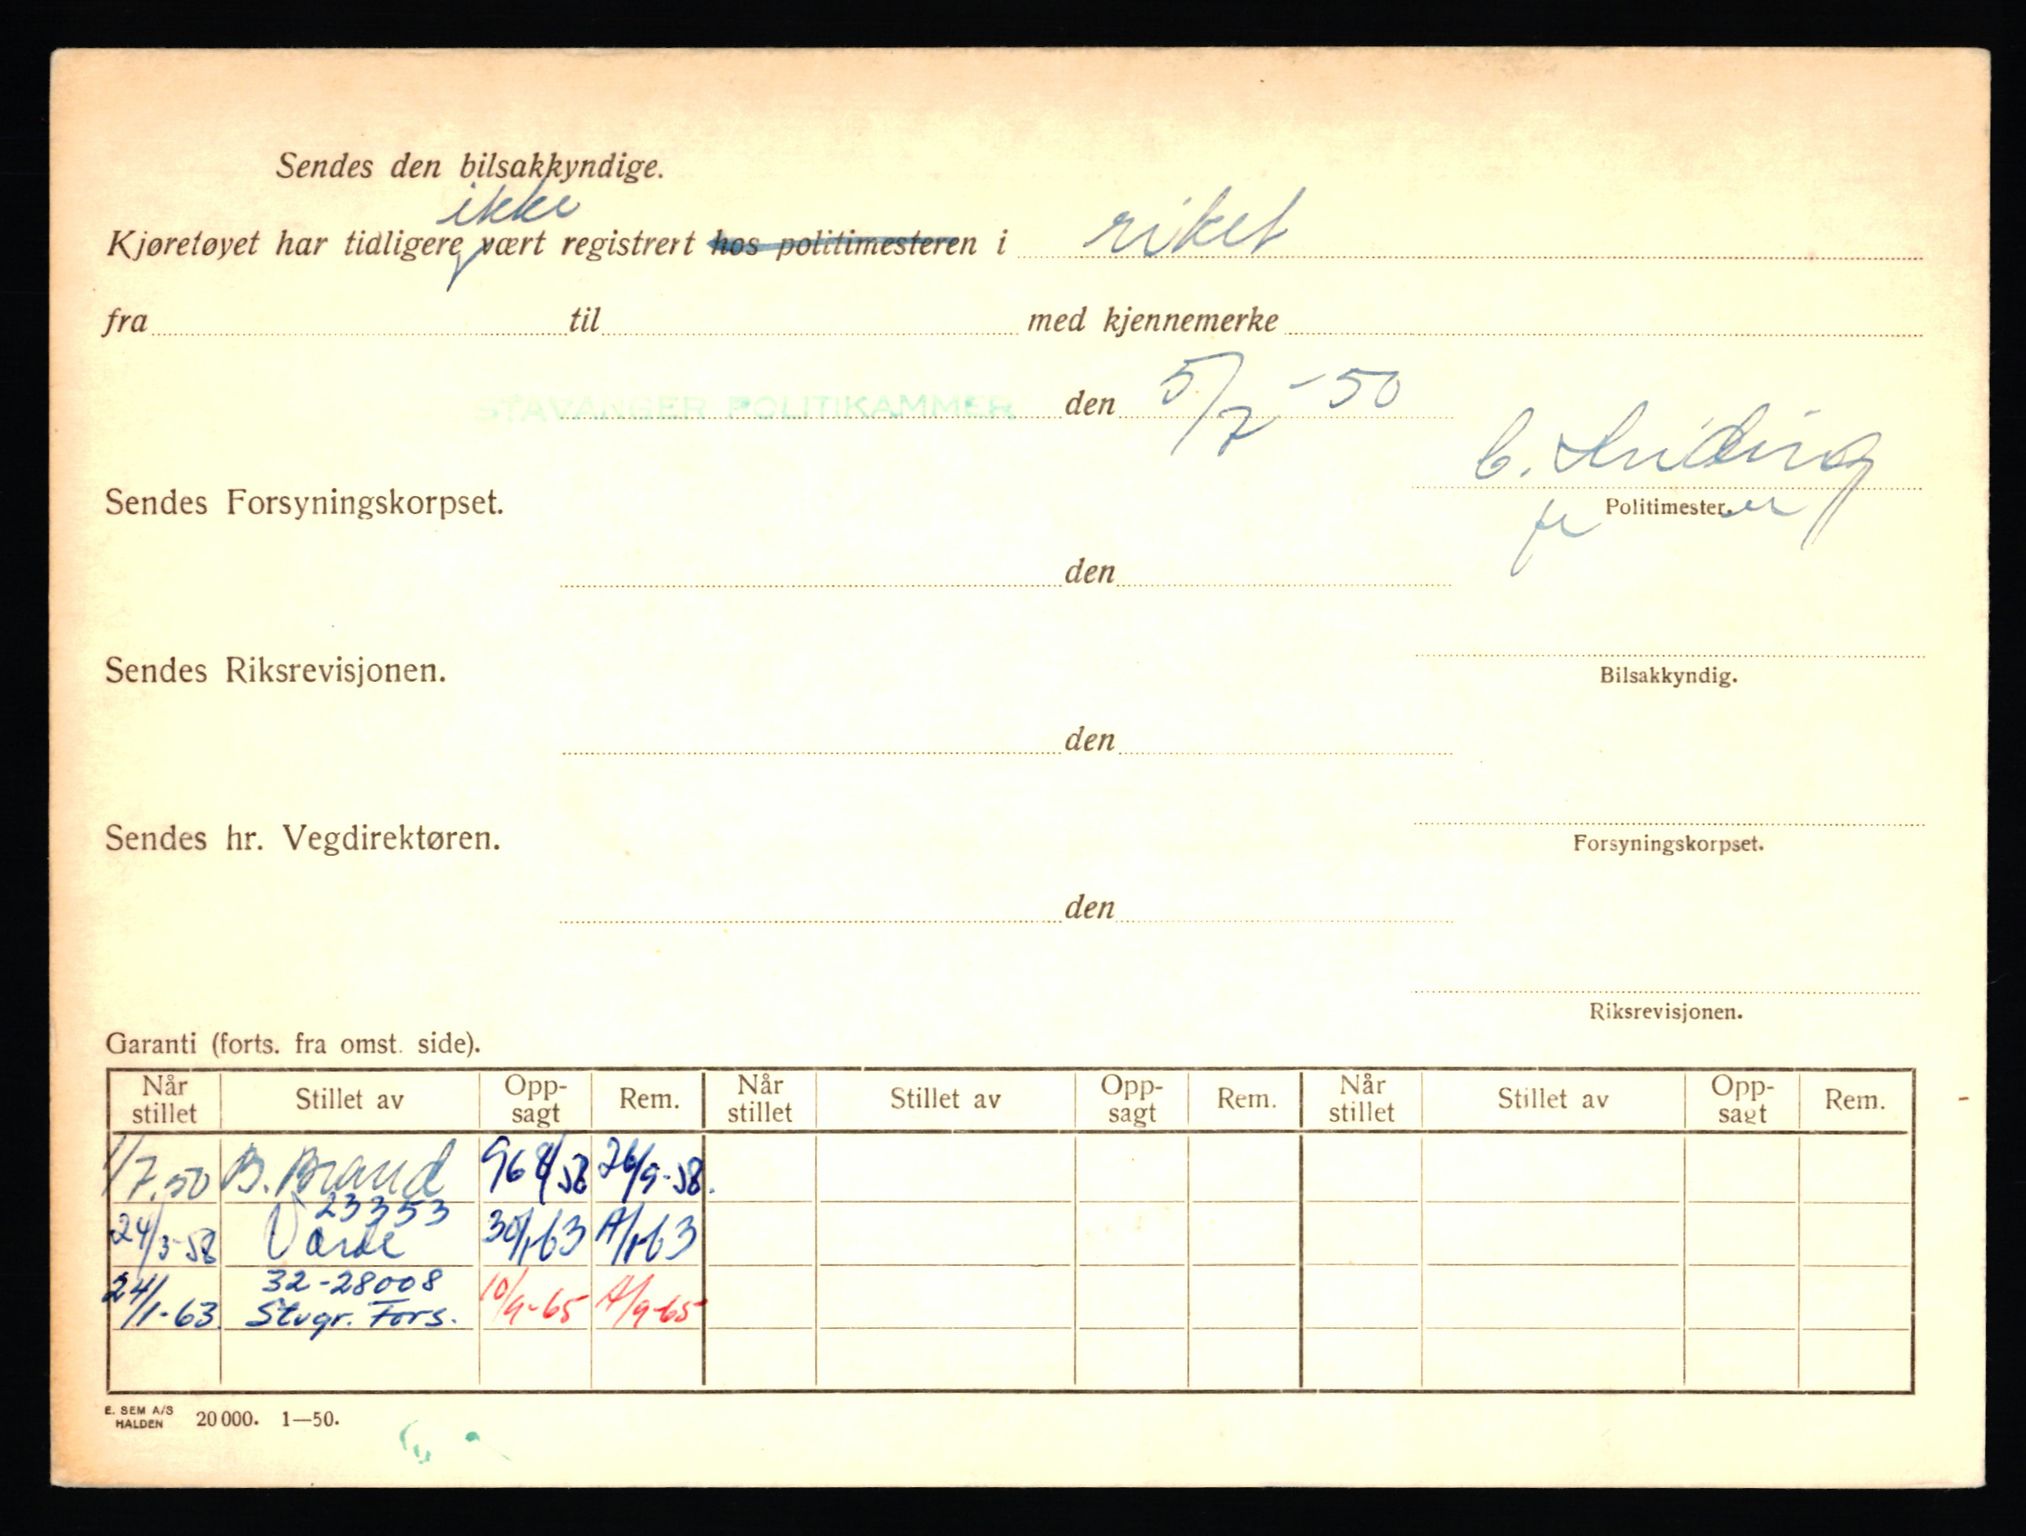 Sendes den bilsakkyndige.
ikke
Kjøretøyet har tidligere vært registrert hos politimesteren i riket
fra til med kjennemerke
STAVANGER POLITIKAMMER den 5/7-50
Sendes Forsyningskorpset. Politimester.
den
Sendes Riksrevisjonen. Bilsakkyndig.
den
Sendes hr. Vegdirektøren. Forsyningskorpset.
den
Riksrevisjonen.
Garanti (forts. fra omst. side).
Når stillet Stillet av Opp-sagt Rem. Når stillet Stillet av Opp-sagt Rem. Når stillet Stillet av Opp-sagt Rem.
1/7.50 B. Brand 26/9-58.
23353
24/3-58 Varde 30/1-63 A/1-63
32-28008
24/1-63 Stvgr. Fors. 10/9-65 A/9-65
E. SEM A/S
HALDEN 20000. 1—50.